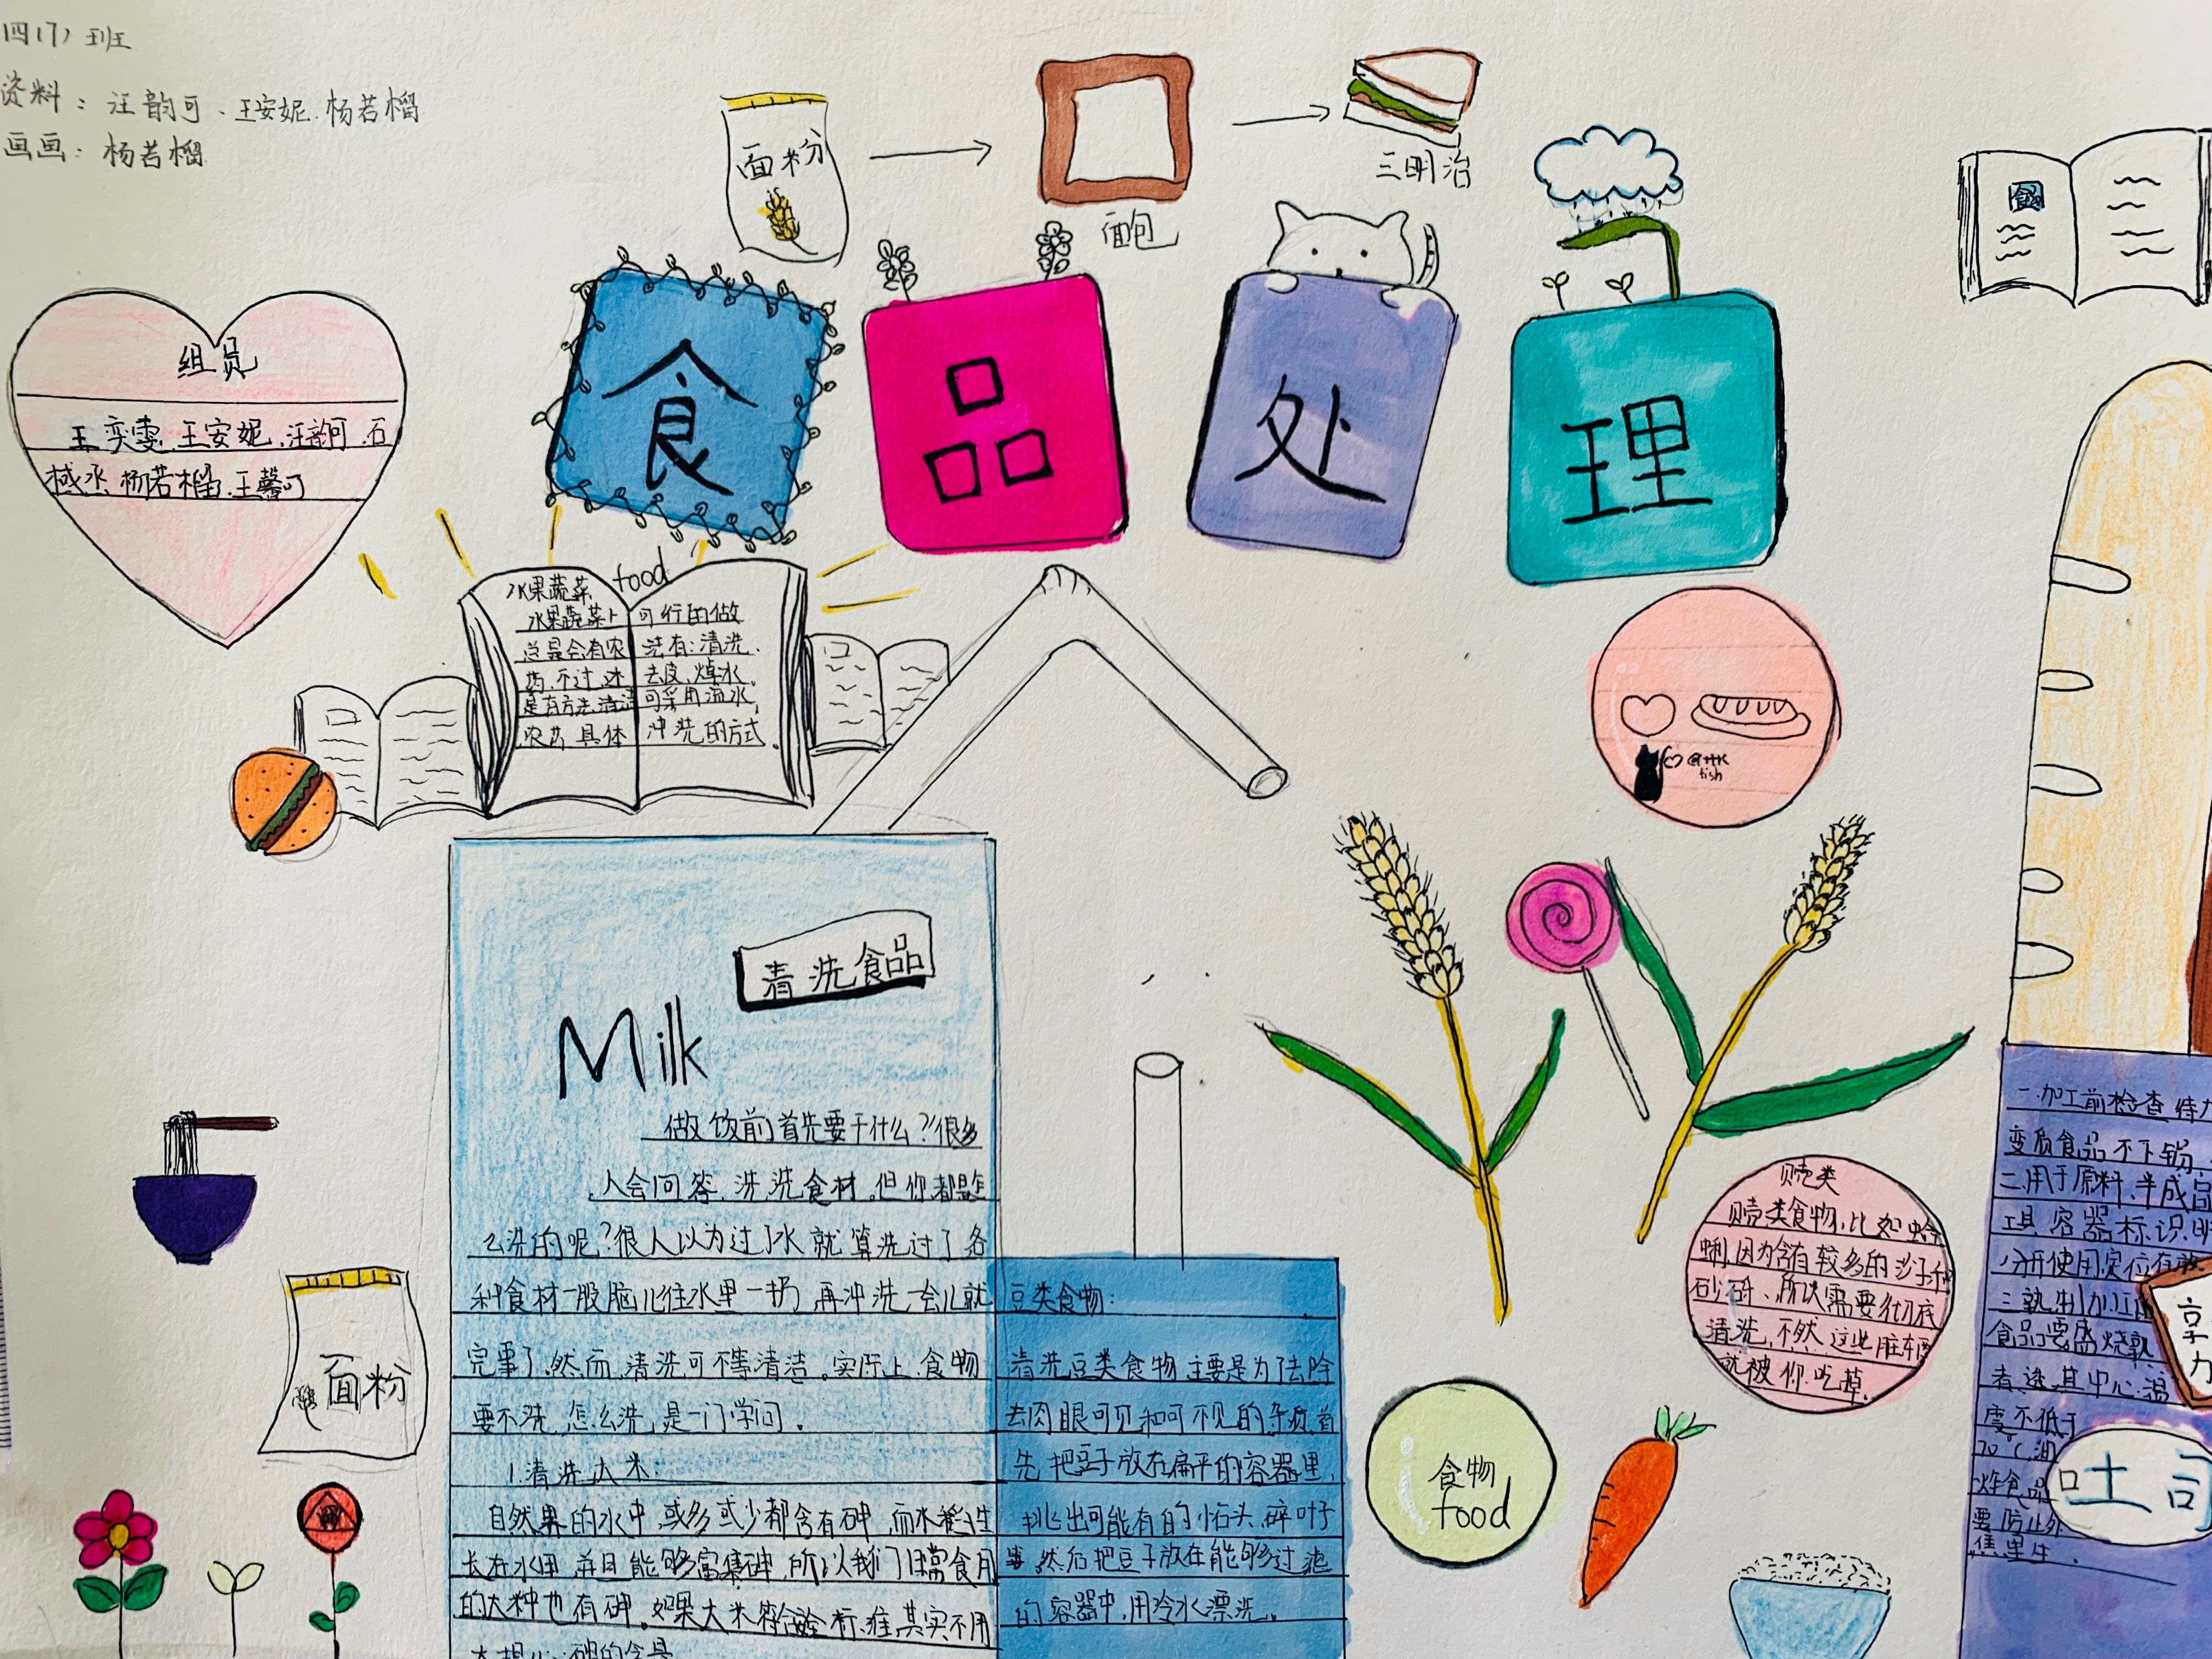 四(7)班
资料：汪韵可、王安妮、杨若榴
画画：杨若榴
面粉
面包
三明治
食
食品处理
组员
王奕雯、王安妮、汪韵可、石
棫丞、杨若榴、王馨
food
水果蔬菜
水果蔬菜上
总是会有农
药，不过，还
是有方法清洁
农药，具体
可行的做
法有：清洗、
去皮、焯水。
可采用流水
冲洗的方式。
fish
清洗食品
Milk
做饭前首先要干什么？很多
人会回答，洗洗食材。但你都是怎
么洗的呢？很人以为过了水就算洗过了各
种食材一股脑儿往水里一扔，再冲洗一会儿就
完事了，然而，清洗可不等清洁。实际上，食物
要不洗，怎么洗，是一门学问。
1.清洗大米：
自然界的水中，或多或少都含有砷，而水稻生
长在水里，并且能够富集砷，所以我们日常食用
的大种也有砷。如果大米符合标准，其实不用
太担心砷的含量
豆类食物：
清洗豆类食物，主要是为了去除
去肉眼可见和可不见的杂质，首
先把豆子放在扁平的容器里，
挑出可能有的小石头、碎叶子
等，然后把豆子放在能够过滤
的容器中，用冷水漂洗。
贝壳类
贝壳类食物，比如蛤
蜊，因为含有较多的沙子和
砂砾、所以需要彻底
清洗，不然，这些脏东西
就被你吃掉。
食物
food
面粉
一.加工前检查待
变质食品不下锅、
二.用于原料、半成品
工具、容器标识明
分开使用定位存放
三.熟制加工
食品要盛烧熟
煮透其中心温
度不低于
70℃，油
炸食品
要防止外
焦里生.
享
土司